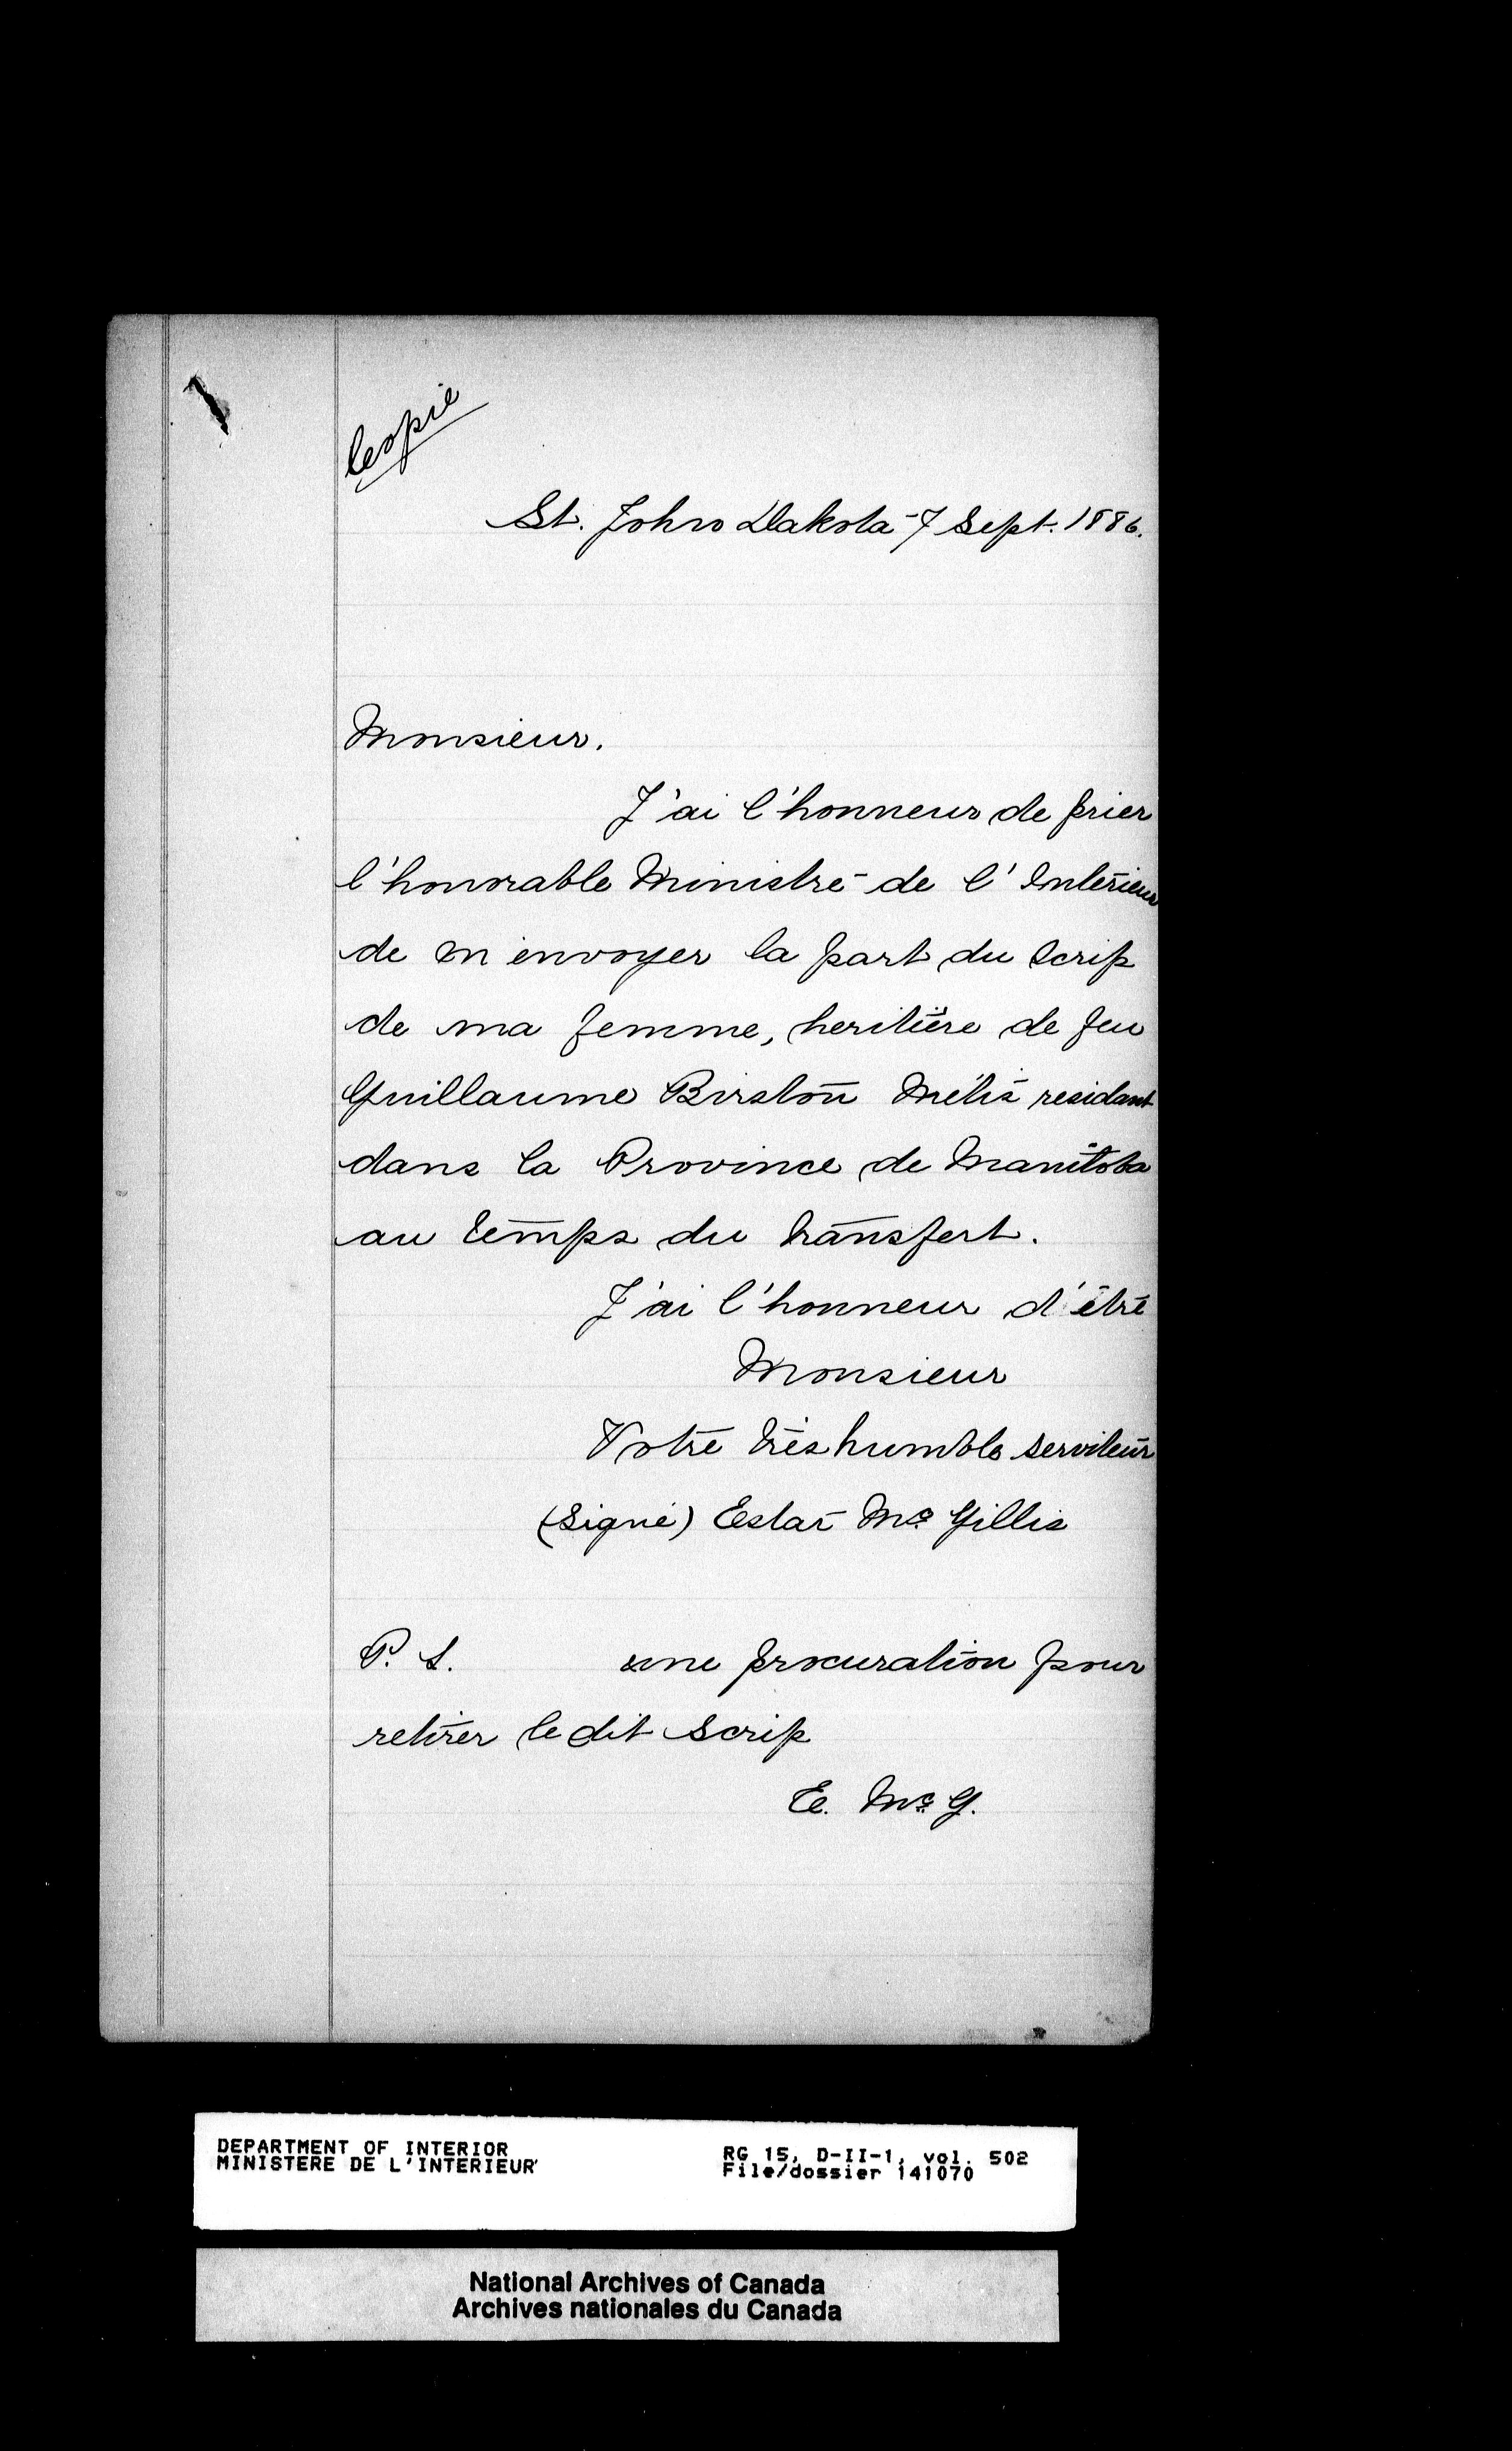 Copie
St. John Dakota 7 Sept. 1886.
Monsieur.
J'ai l'honneur de prier
l'honorable Ministre de l'Intérieur
de m'envoyer la part du scrip
de ma femme, heritière de feu
Guillaume Birston Métis residant
dans la Province de Manitoba
au temps du transfert.
J'ai l'honneur d'être
Monsieur
Votre très humble serviteur
(Signé) Estar McGillis
P. S. une procuration pour
retirer le dit Scrip
E. McG.
DEPARTMENT OF INTERIOR
MINISTERE DE L'INTERIEUR
RG 15, D-II-1, vol. 502
File/dossier 141070
National Archives of Canada
Archives nationales du Canada